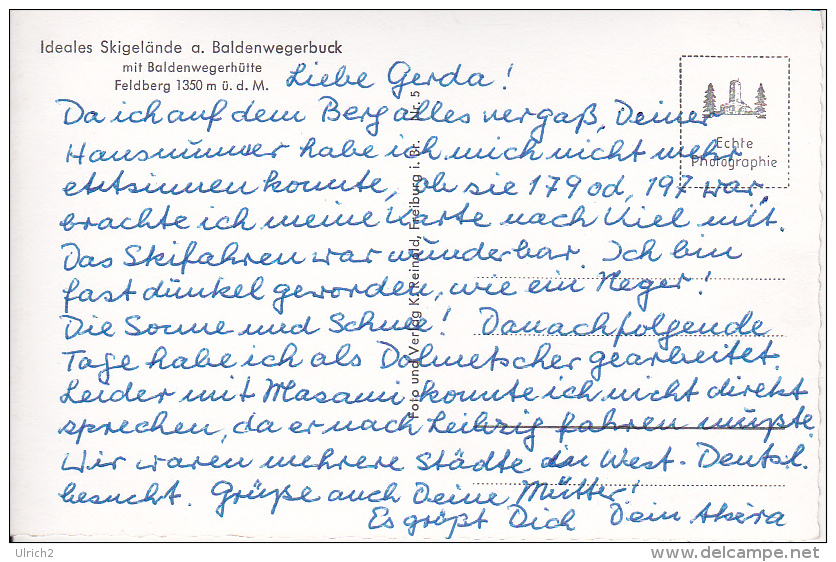 Ideales Skigelände a. Baldenwegerbuck
mit Baldenwegerhütte
Feldberg 1350 m ü. d. M.
Echte
Photographie
Foto und Verlag K. Reinold, Freiburg i. Br. Nr. 5
Liebe Gerda!
Da ich auf dem Berg alles vergaß, Deiner
Hausnummer habe ich mich nicht mehr
entsinnen konnte, ob sie 179 od. 197 war,
brachte ich meine Karte nach Kiel mit.
Das Skifahren war wunderbar. Ich bin
fast dunkel geworden, wie ein Neger!
Die Sonne und Schnee! Danachfolgende
Tage habe ich als Dolmetscher gearbeitet.
Leider mit Masami konnte ich nicht direkt
sprechen, da er nach Leibzig fahren mußte.
Wir waren mehrere Städte in West-Deutsl.
besucht. Grüße auch Deine Mutter!
Es grüßt Dich Dein Akira
Ulrich2
www.delcampe.net